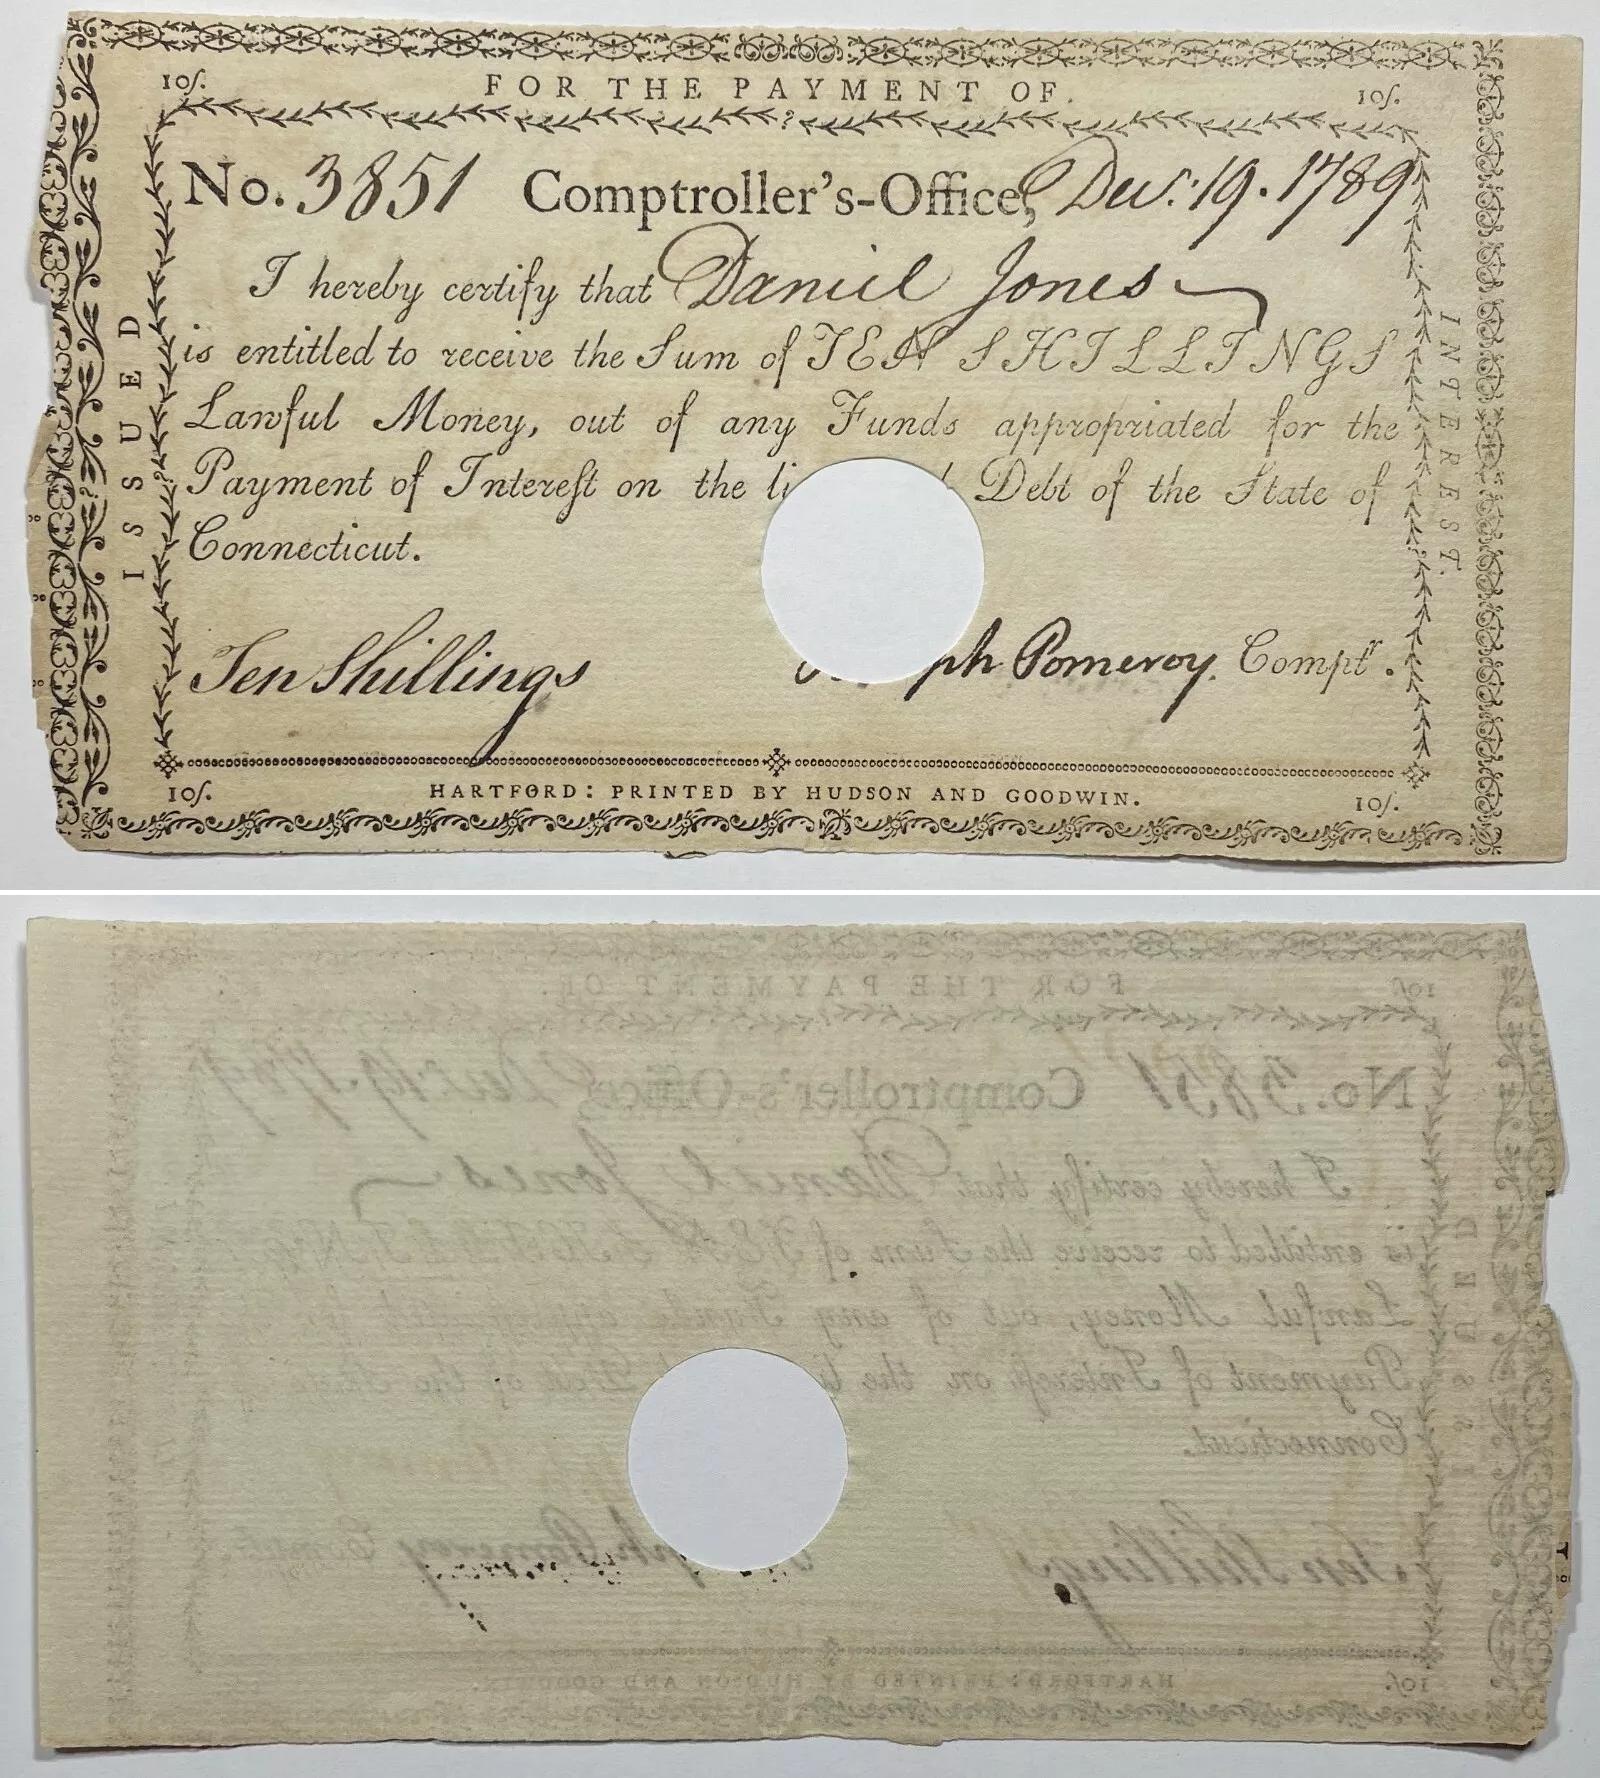 10ſ. FOR THE PAYMENT OF. 10ſ.
No. 3851 Comptroller's-Office, Dec. 19. 1789
I hereby certify that Daniel Jones
is entitled to receive the Sum of TEN SHILLINGS
Lawful Money, out of any Funds appropriated for the
Payment of Intereſt on the li Debt of the State of
Connecticut.
Ten Shillings ph Pomeroy. Comptr.
10ſ. HARTFORD: PRINTED BY HUDSON AND GOODWIN. 10ſ.
ISSUED
INTEREST.